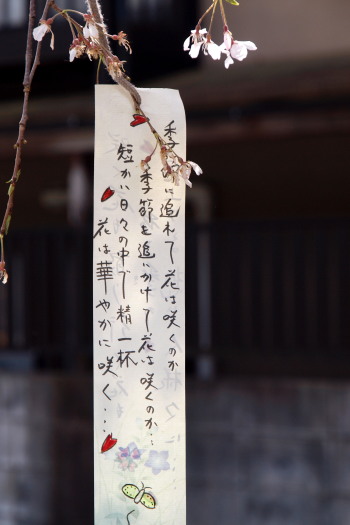 季節に追れて花は咲くのか
季節を追いかけて花は咲くのか…
短かい日々の中で精一杯
花は華やかに咲く…